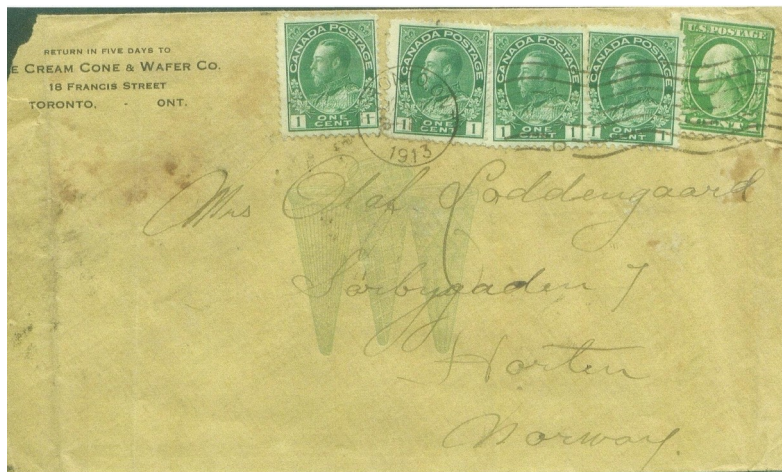 RETURN IN FIVE DAYS TO
E CREAM CONE & WAFER CO.
18 FRANCIS STREET
TORONTO, - ONT.
CANADA POSTAGE
1 ONE CENT 1
CANADA POSTAGE
1 ONE CENT 1
CANADA POSTAGE
1 ONE CENT 1
CANADA POSTAGE
1 ONE CENT 1
U.S. POSTAGE
1913
Mrs Olaf Loddengaard
Sørbygaden 7
Horten
Norway.